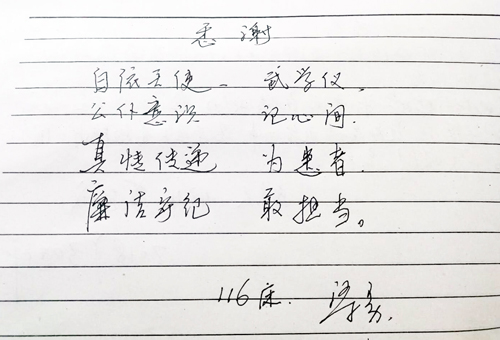 悉谢
白依天使、武学仪、
公仆意识 记心间.
真情传递 为患者.
廉洁守纪 敢担当。
116床.